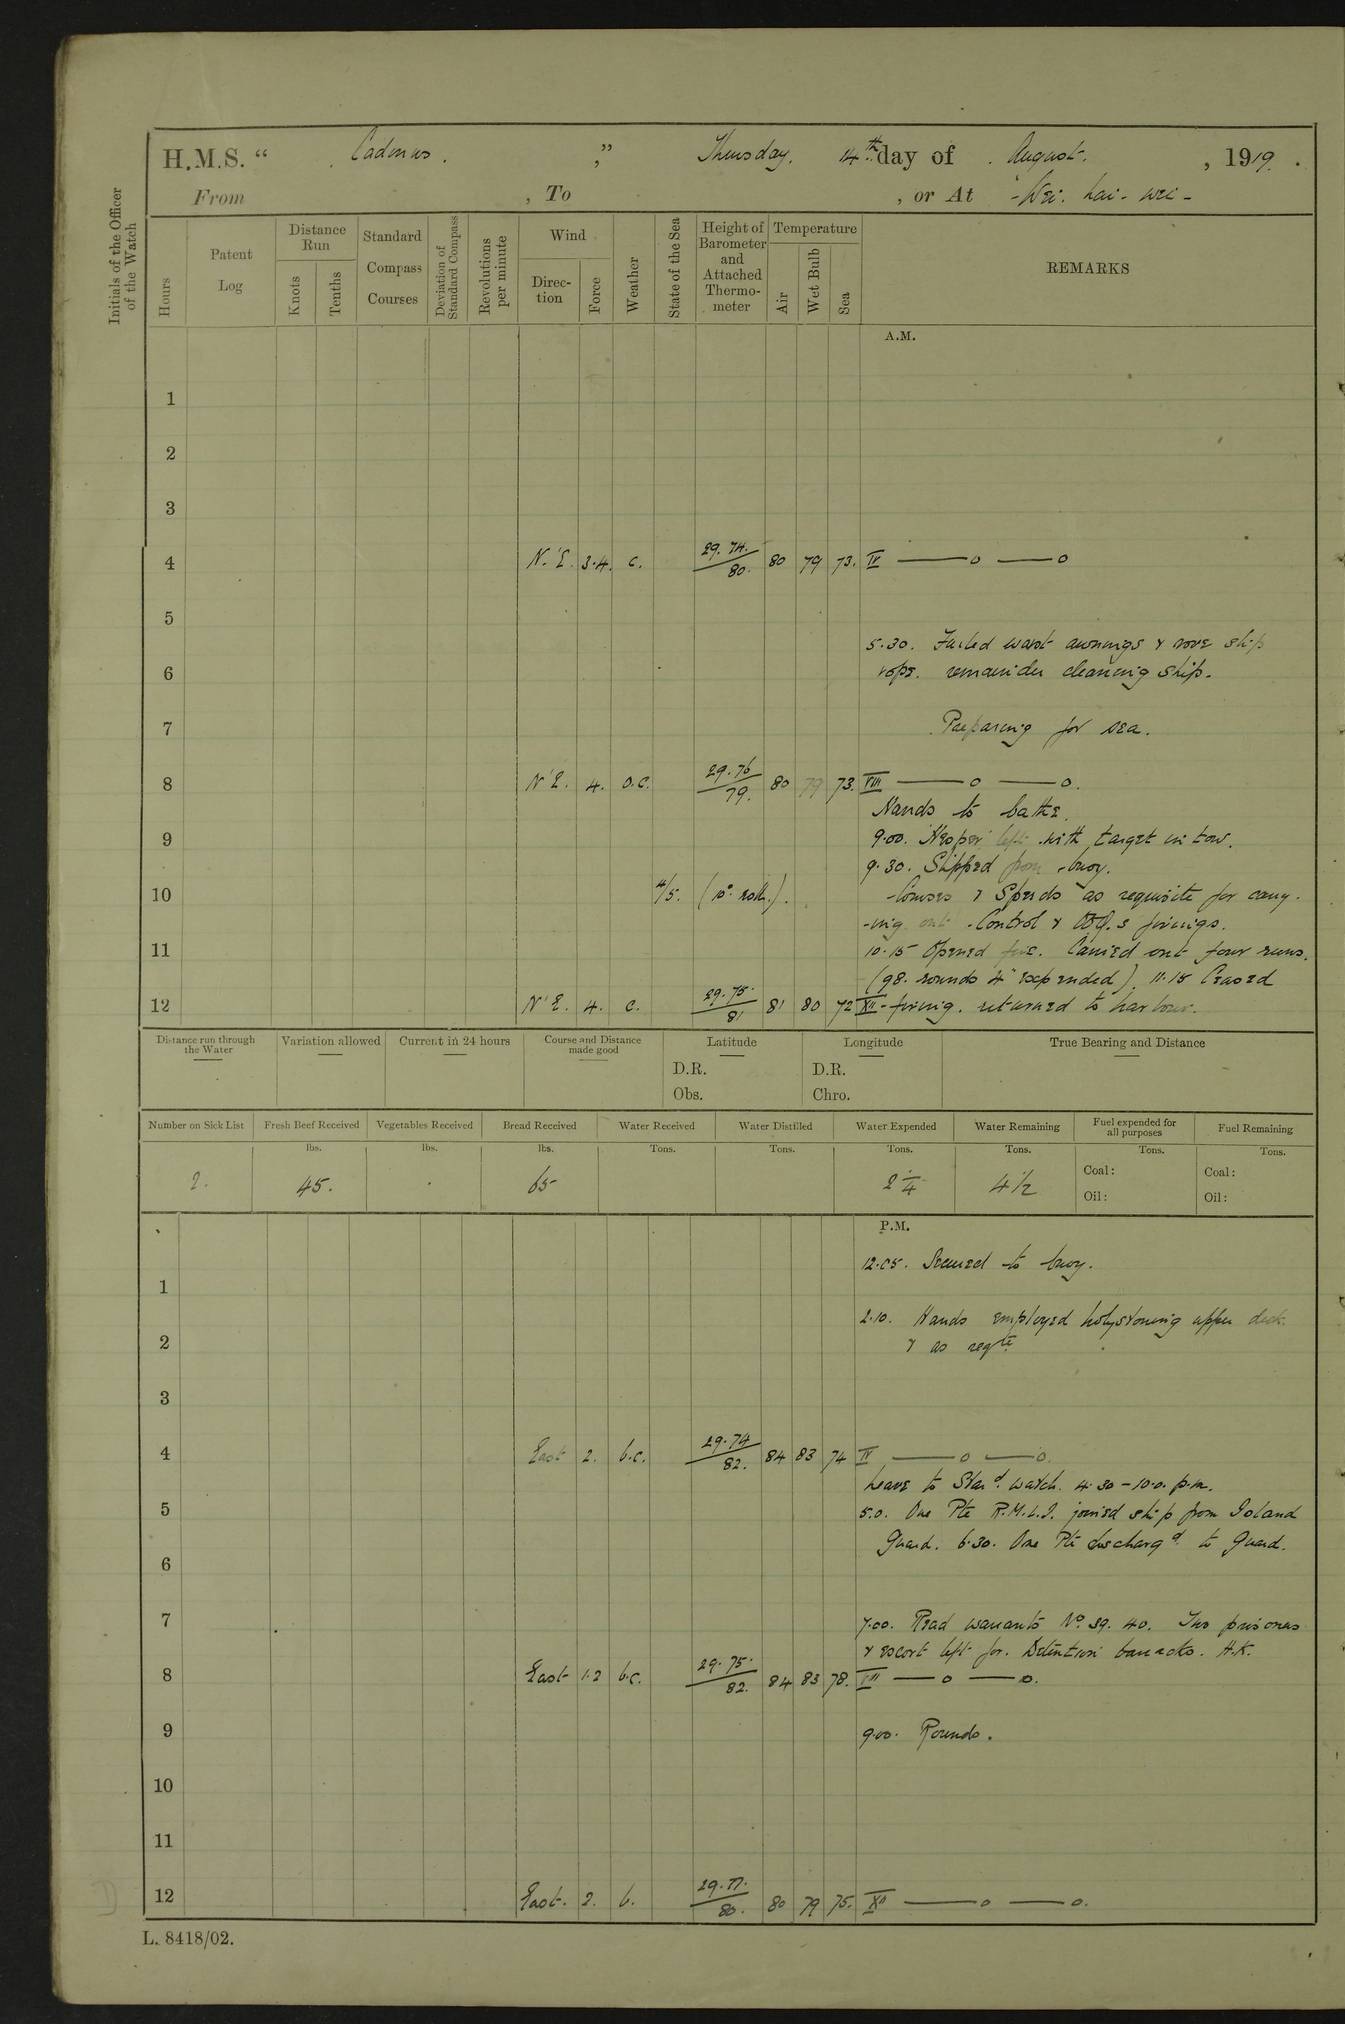 H.M.S. " Cadmus. ," Thursday. 14th day of August. , 1919.
From , To , or At - Wei-hai-wei -
Initials of the Officer of the Watch
Hours
Patent Log
Distance Run
Knots
Tenths
Standard Compass Courses
Deviation of Standard Compass
Revolutions per minute
Wind
Direction
Force
Weather
State of the Sea
Height of Barometer and Attached Thermometer
Temperature
Air
Wet Bulb
Sea
REMARKS
A.M.
1
2
3
4 N.'E. 3.4. c. 29.74./80. 80 79 73. IV —— o —— o
5
5.30. Furled wast awnings & rove ship
6 rope. remainder cleaning ship.
7 Preparing for sea.
8 N'E. 4. o.c. 29.76/79. 80 79 73. VIII —— o —— o.
Hands to bathe.
9 9.00. left with target in tow.
9.30. Slipped from buoy.
10 4/5. (10° roll.). Courses & Speeds as requisite for carry-
-ing out Control & firings.
11 10.15 Opened fire. Carried out four runs.
(98. rounds 4" expended). 11.15 Ceased
12 N'E. 4. c. 29.75./81 81 80 72 XII - firing. returned to harbour.
Distance run through the Water
Variation allowed
Current in 24 hours
Course and Distance made good
Latitude
D.R.
Obs.
Longitude
D.R.
Chro.
True Bearing and Distance
Number on Sick List
Fresh Beef Received
Vegetables Received
Bread Received
Water Received
Water Distilled
Water Expended
Water Remaining
Fuel expended for all purposes
Fuel Remaining
lbs. lbs. lbs. Tons. Tons. Tons. Tons. Tons. Tons.
2. 45. 65 2 1/4 4 1/2 Coal: Coal:
Oil: Oil:
P.M.
12.05. Secured to buoy.
1
2.10. Hands employed holystoning upper deck.
2 & as reqte
3
4 East 2. b.c. 29.74/82. 84 83 74 IV —— o —— o.
Leave to Stard. watch. 4.30 - 10.0. p.m.
5 5.0. One Pte R.M.L.I. joined ship from Island
Guard. 6.30. One Pte discharged. to Guard.
6
7 7.00. Read warrants No. 39. 40. Two prisoners
& escort left for. Detention barracks. H.K.
8 East 1.2 b.c. 29.75./82. 84 83 78. VIII —— o —— o.
9 9.00. Rounds.
10
11
12 East. 2. b. 29.77./80. 80 79 75. XII —— o —— o.
L. 8418/02.